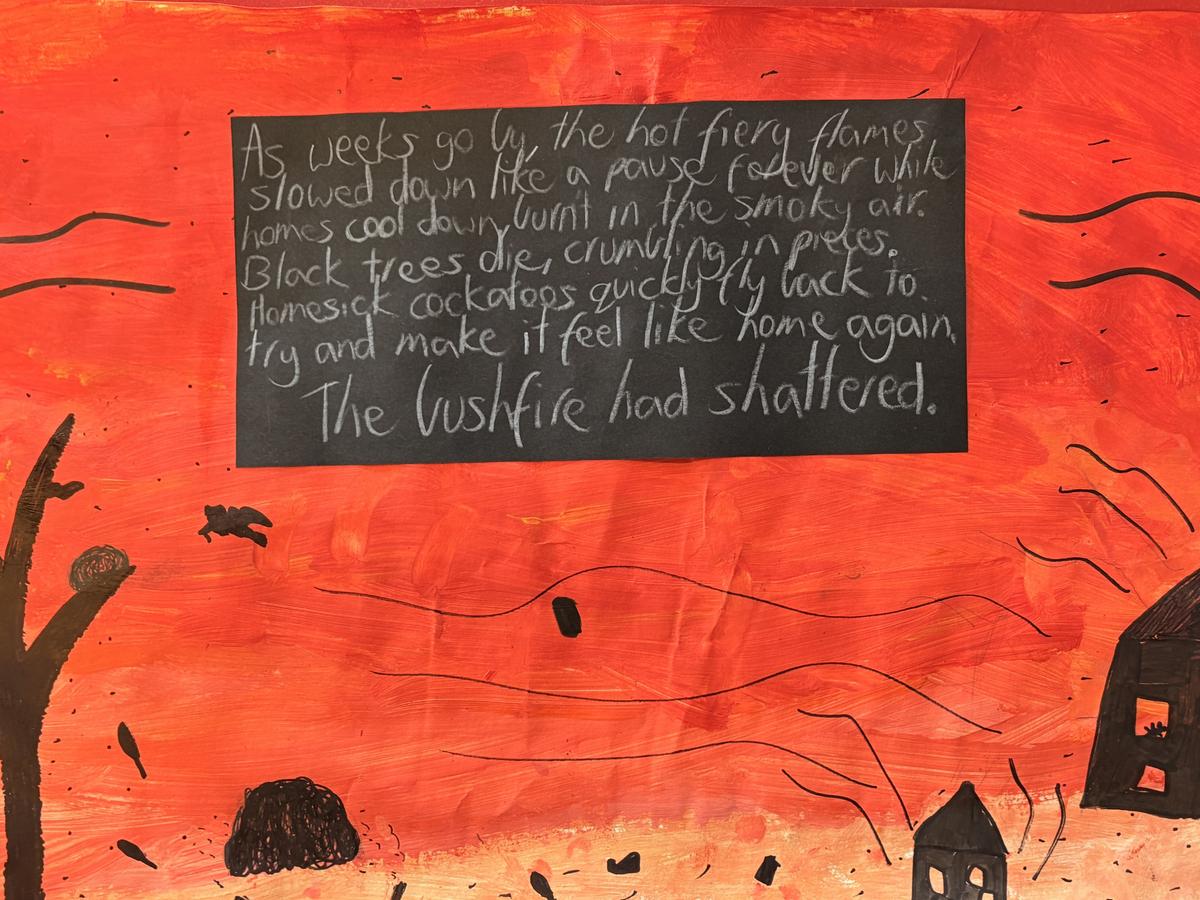 As weeks go by, the hot fiery flames
slowed down like a pause forever while
homes cool down, burnt in the smoky air.
Black trees die, crumbling in pieces.
Homesick cockatoos quickly fly back to
try and make it feel like home again.
The bushfire had shattered.